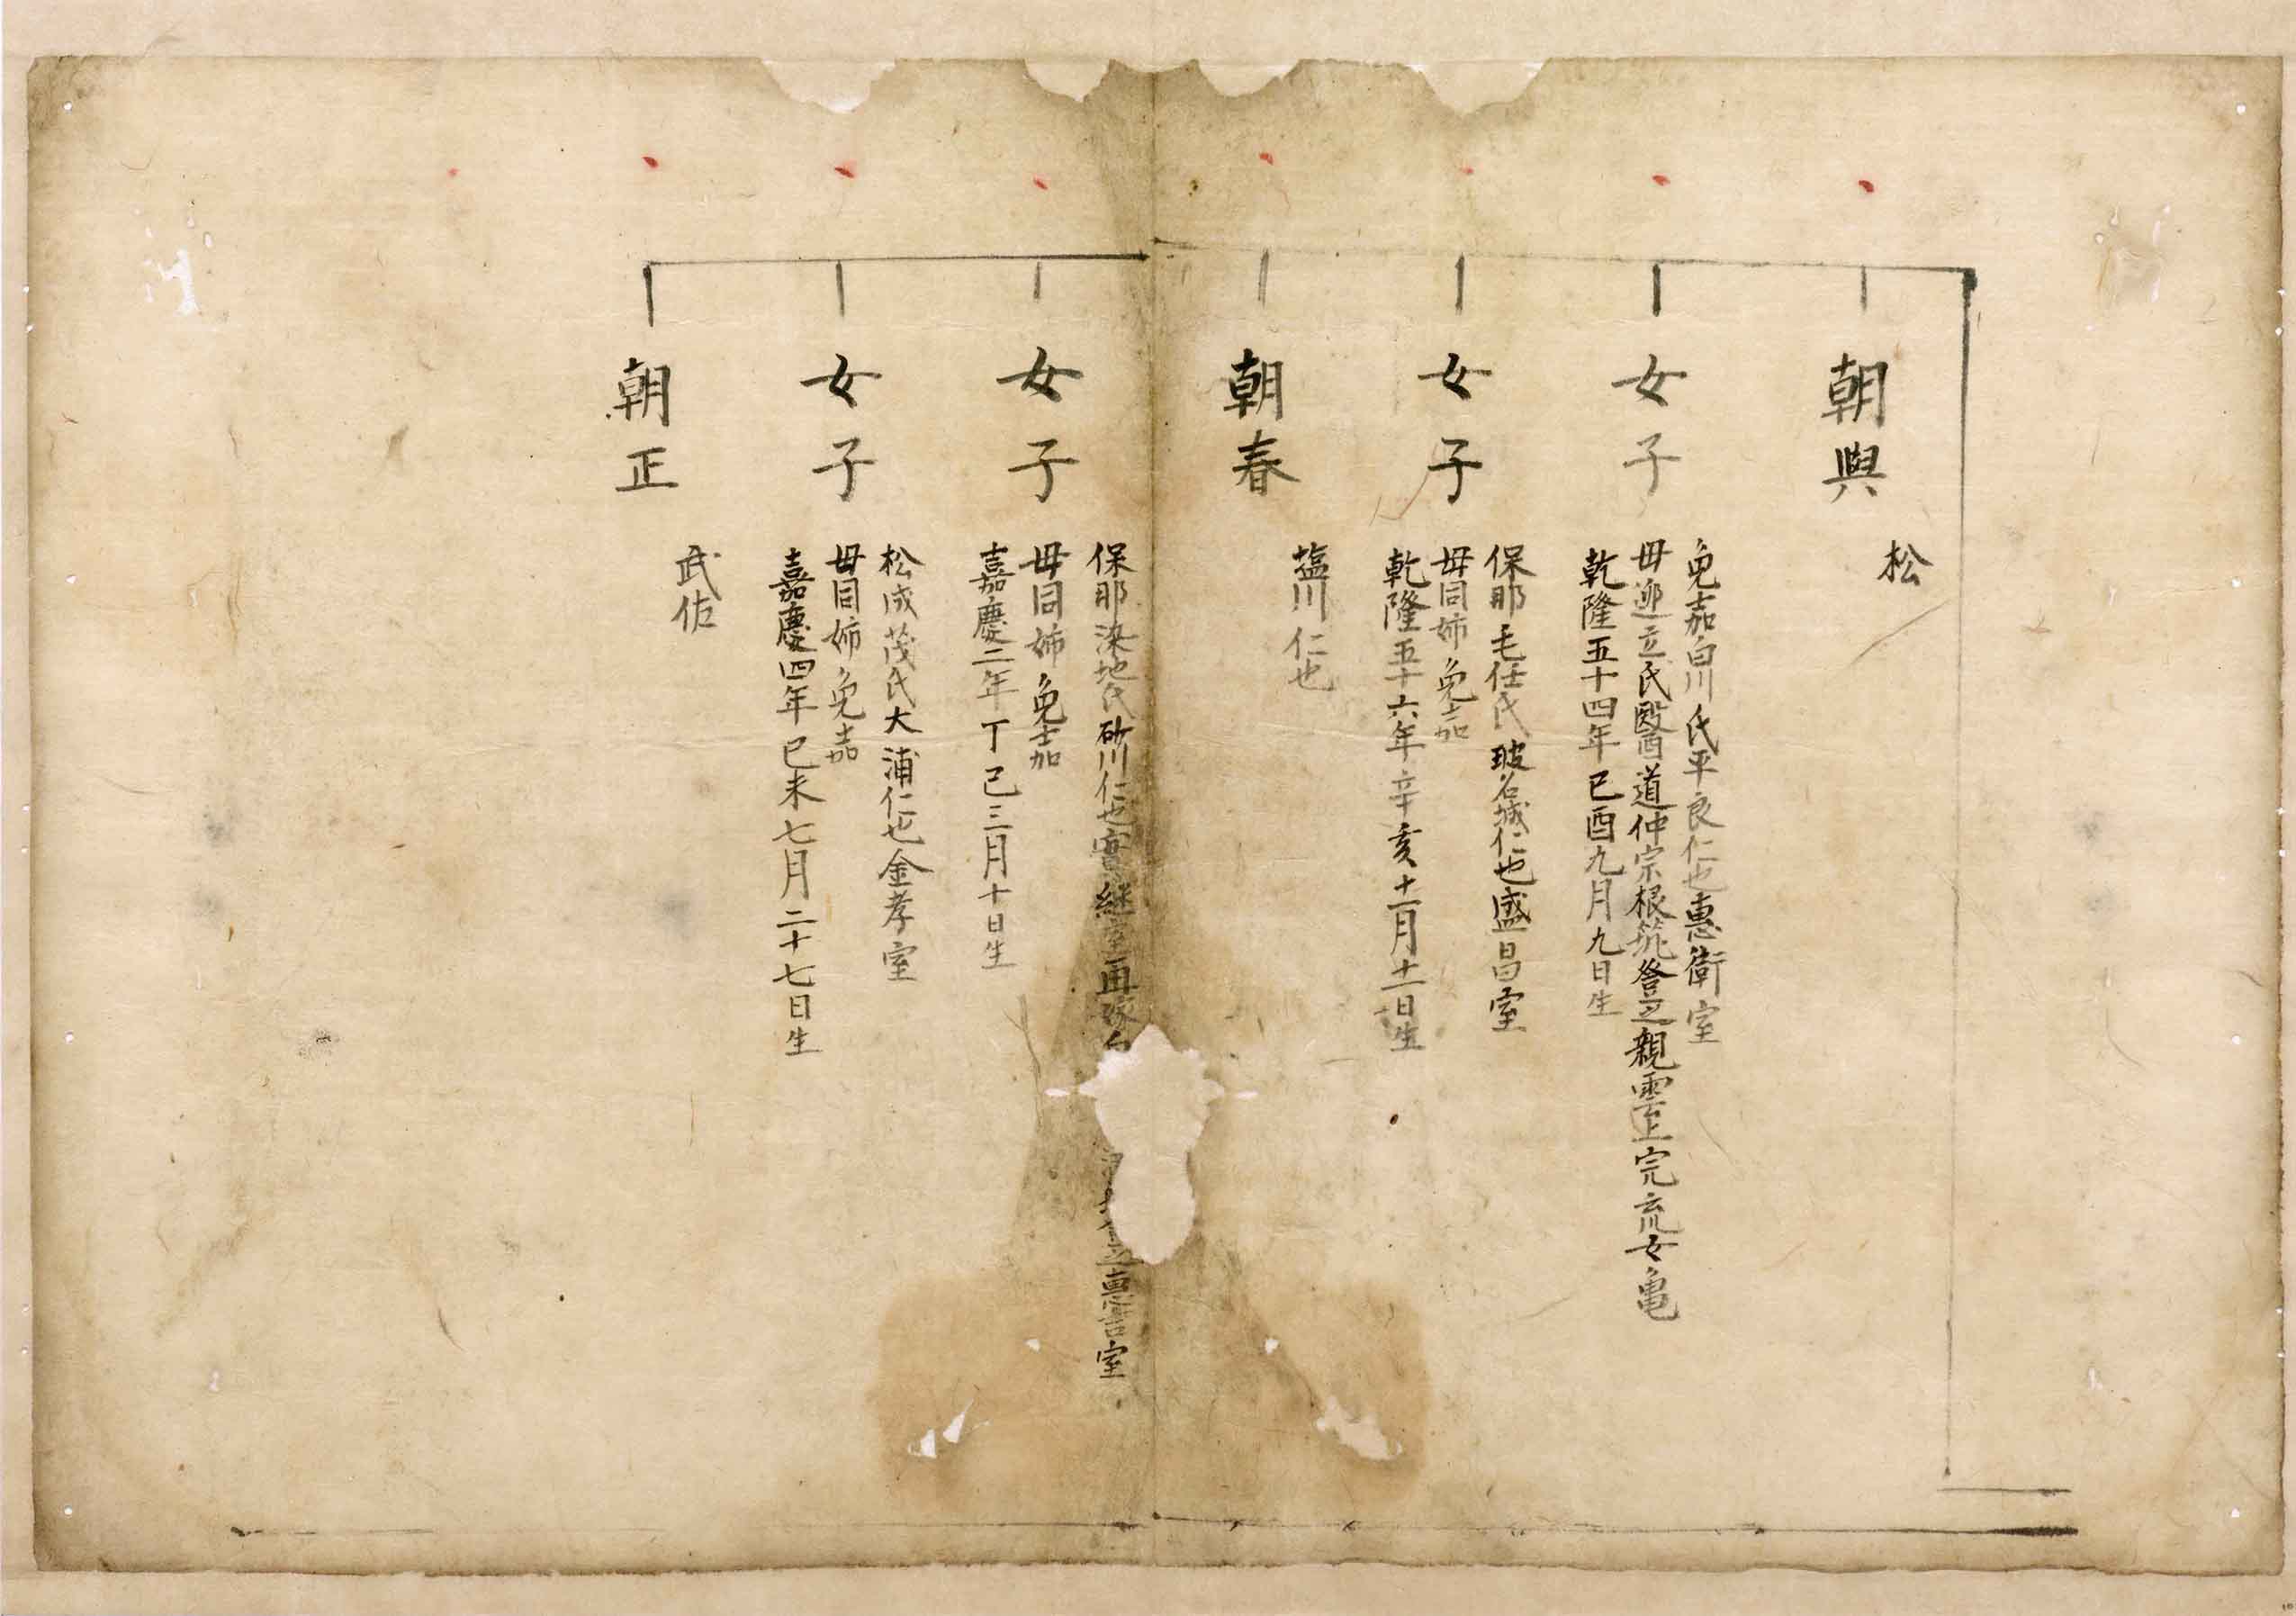 朝興
松
女子
免嘉白川氏平良仁也惠衛室
母迎立氏醫道仲宗根筑登之親雲上完荒女亀
乾隆五十四年己酉九月九日生
女子
保那毛任氏玻名城仁也盛昌室
母同姉免嘉
乾隆五十六年辛亥十一月十一日生
朝春
塩川仁也
女子
保那染地氏砂川仁也實継室再嫁白 惠書室
母同姉免嘉
嘉慶二年丁巳三月十日生
女子
松成茂氏大浦仁也金孝室
母同姉免嘉
嘉慶四年己未七月二十七日生
朝正
武佐